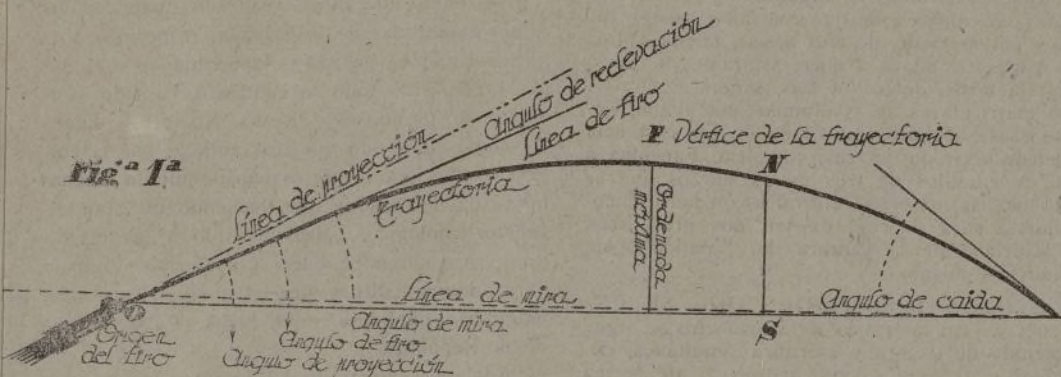 Fig.ª 1ª
Línea de proyección
Angulo de reelevación
Línea de tiro
Trayectoria
F Vértice de la trayectoria
N
Ordenada
máxima
Línea de mira
Angulo de caida
S
Origen
del tiro
Angulo de mira
Angulo de tiro
Angulo de proyección